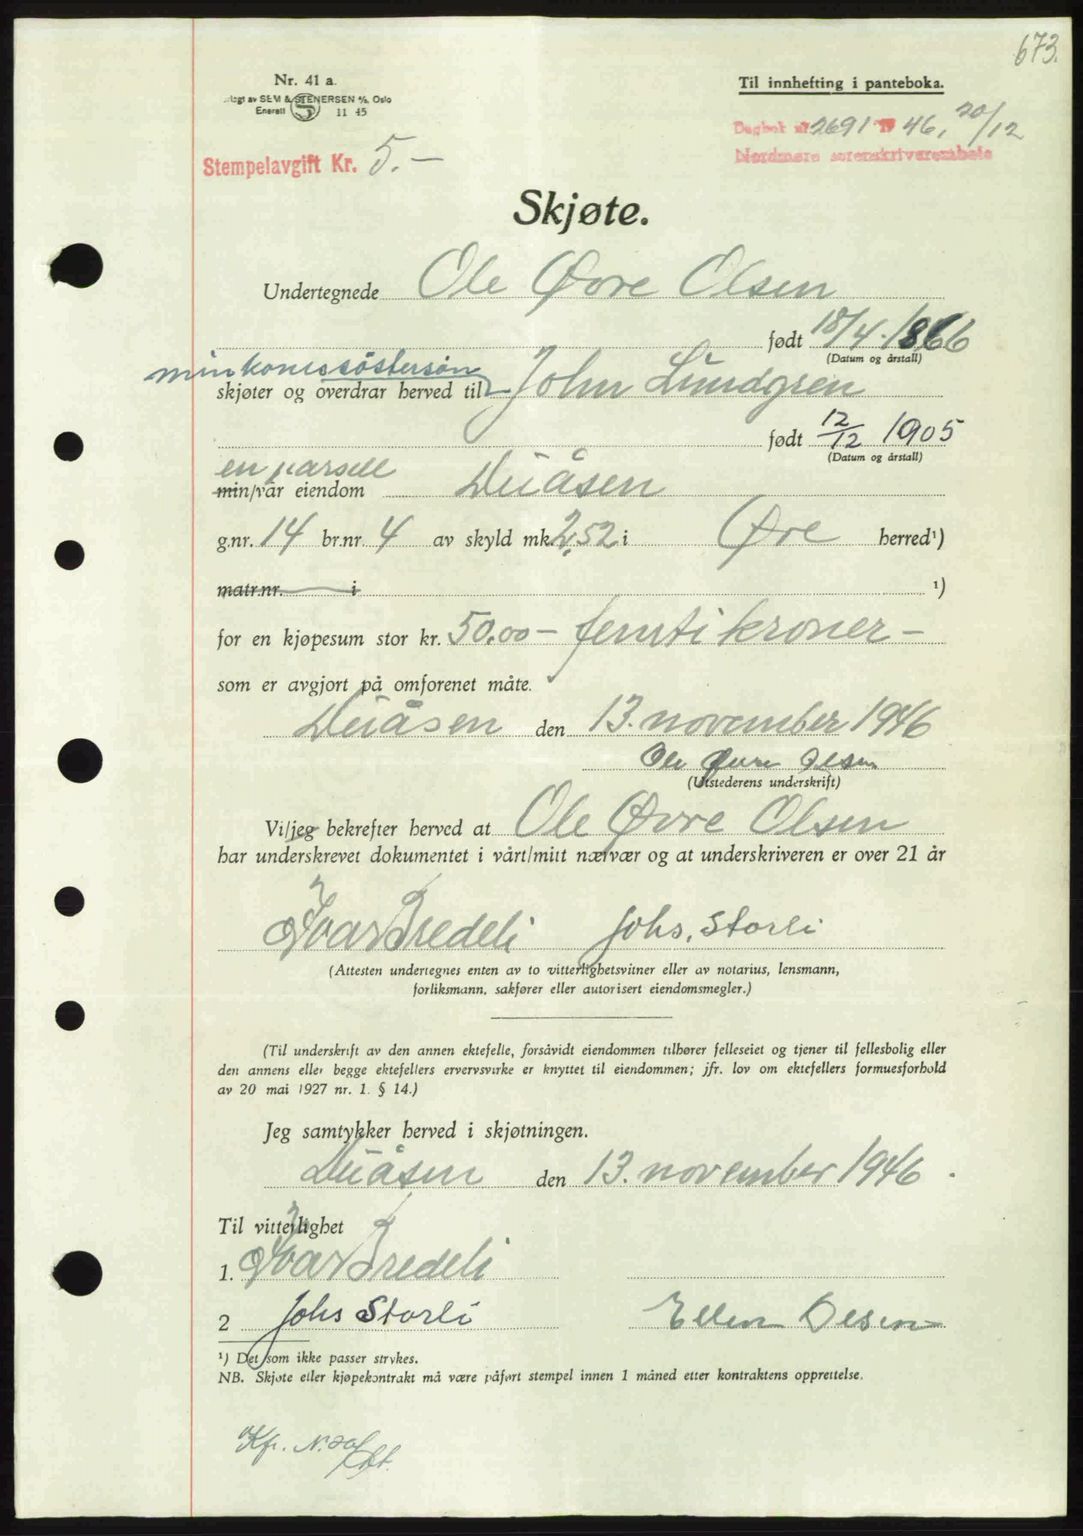 673.
Nr. 41 a.
av SEM & STENERSEN A/S, Oslo
Enerett S 11 45
Til innhefting i panteboka.
Dagbok nr 2691 19 46, 20/12
Nordmøre sorenskriverembete
Stempelavgift Kr. 5.-
Skjøte.
Undertegnede Ole Øvre Olsen
født 18/4. 1866
(Datum og årstall)
min kones söstersön
skjøter og overdrar herved til John Lundgren
født 12/12 1905
(Datum og årstall)
en parsell
min/vår eiendom Duåsen
g.nr. 14 br.nr. 4 av skyld mk 2,52 i Øre herred¹)
matr.nr. i ¹)
for en kjøpesum stor kr. 50.00 - femti kroner -
som er avgjort på omforenet måte.
Duåsen den 13. november 1946
Ole Øvre Olsen
(Utstederens underskrift)
Vi/jeg bekrefter herved at Ole Øvre Olsen
har underskrevet dokumentet i vårt/mitt nærvær og at underskriveren er over 21 år
Ivar Bredeli Johs. Storli
(Attesten undertegnes enten av to vitterlighetsvitner eller av notarius, lensmann,
forliksmann, sakfører eller autorisert eiendomsmegler.)
(Til underskrift av den annen ektefelle, forsåvidt eiendommen tilhører felleseiet og tjener til fellesbolig eller
den annens eller begge ektefellers ervervsvirke er knyttet til eiendommen; jfr. lov om ektefellers formuesforhold
av 20 mai 1927 nr. 1. § 14.)
Jeg samtykker herved i skjøtningen.
Duåsen den 13. november 1946.
Til vitterlighet
1. Ivar Bredeli
2 Johs Storli Ellen Olsen
¹) Det som ikke passer strykes.
NB. Skjøte eller kjøpekontrakt må være påført stempel innen 1 måned etter kontraktens opprettelse.
Kfr. N. 20/